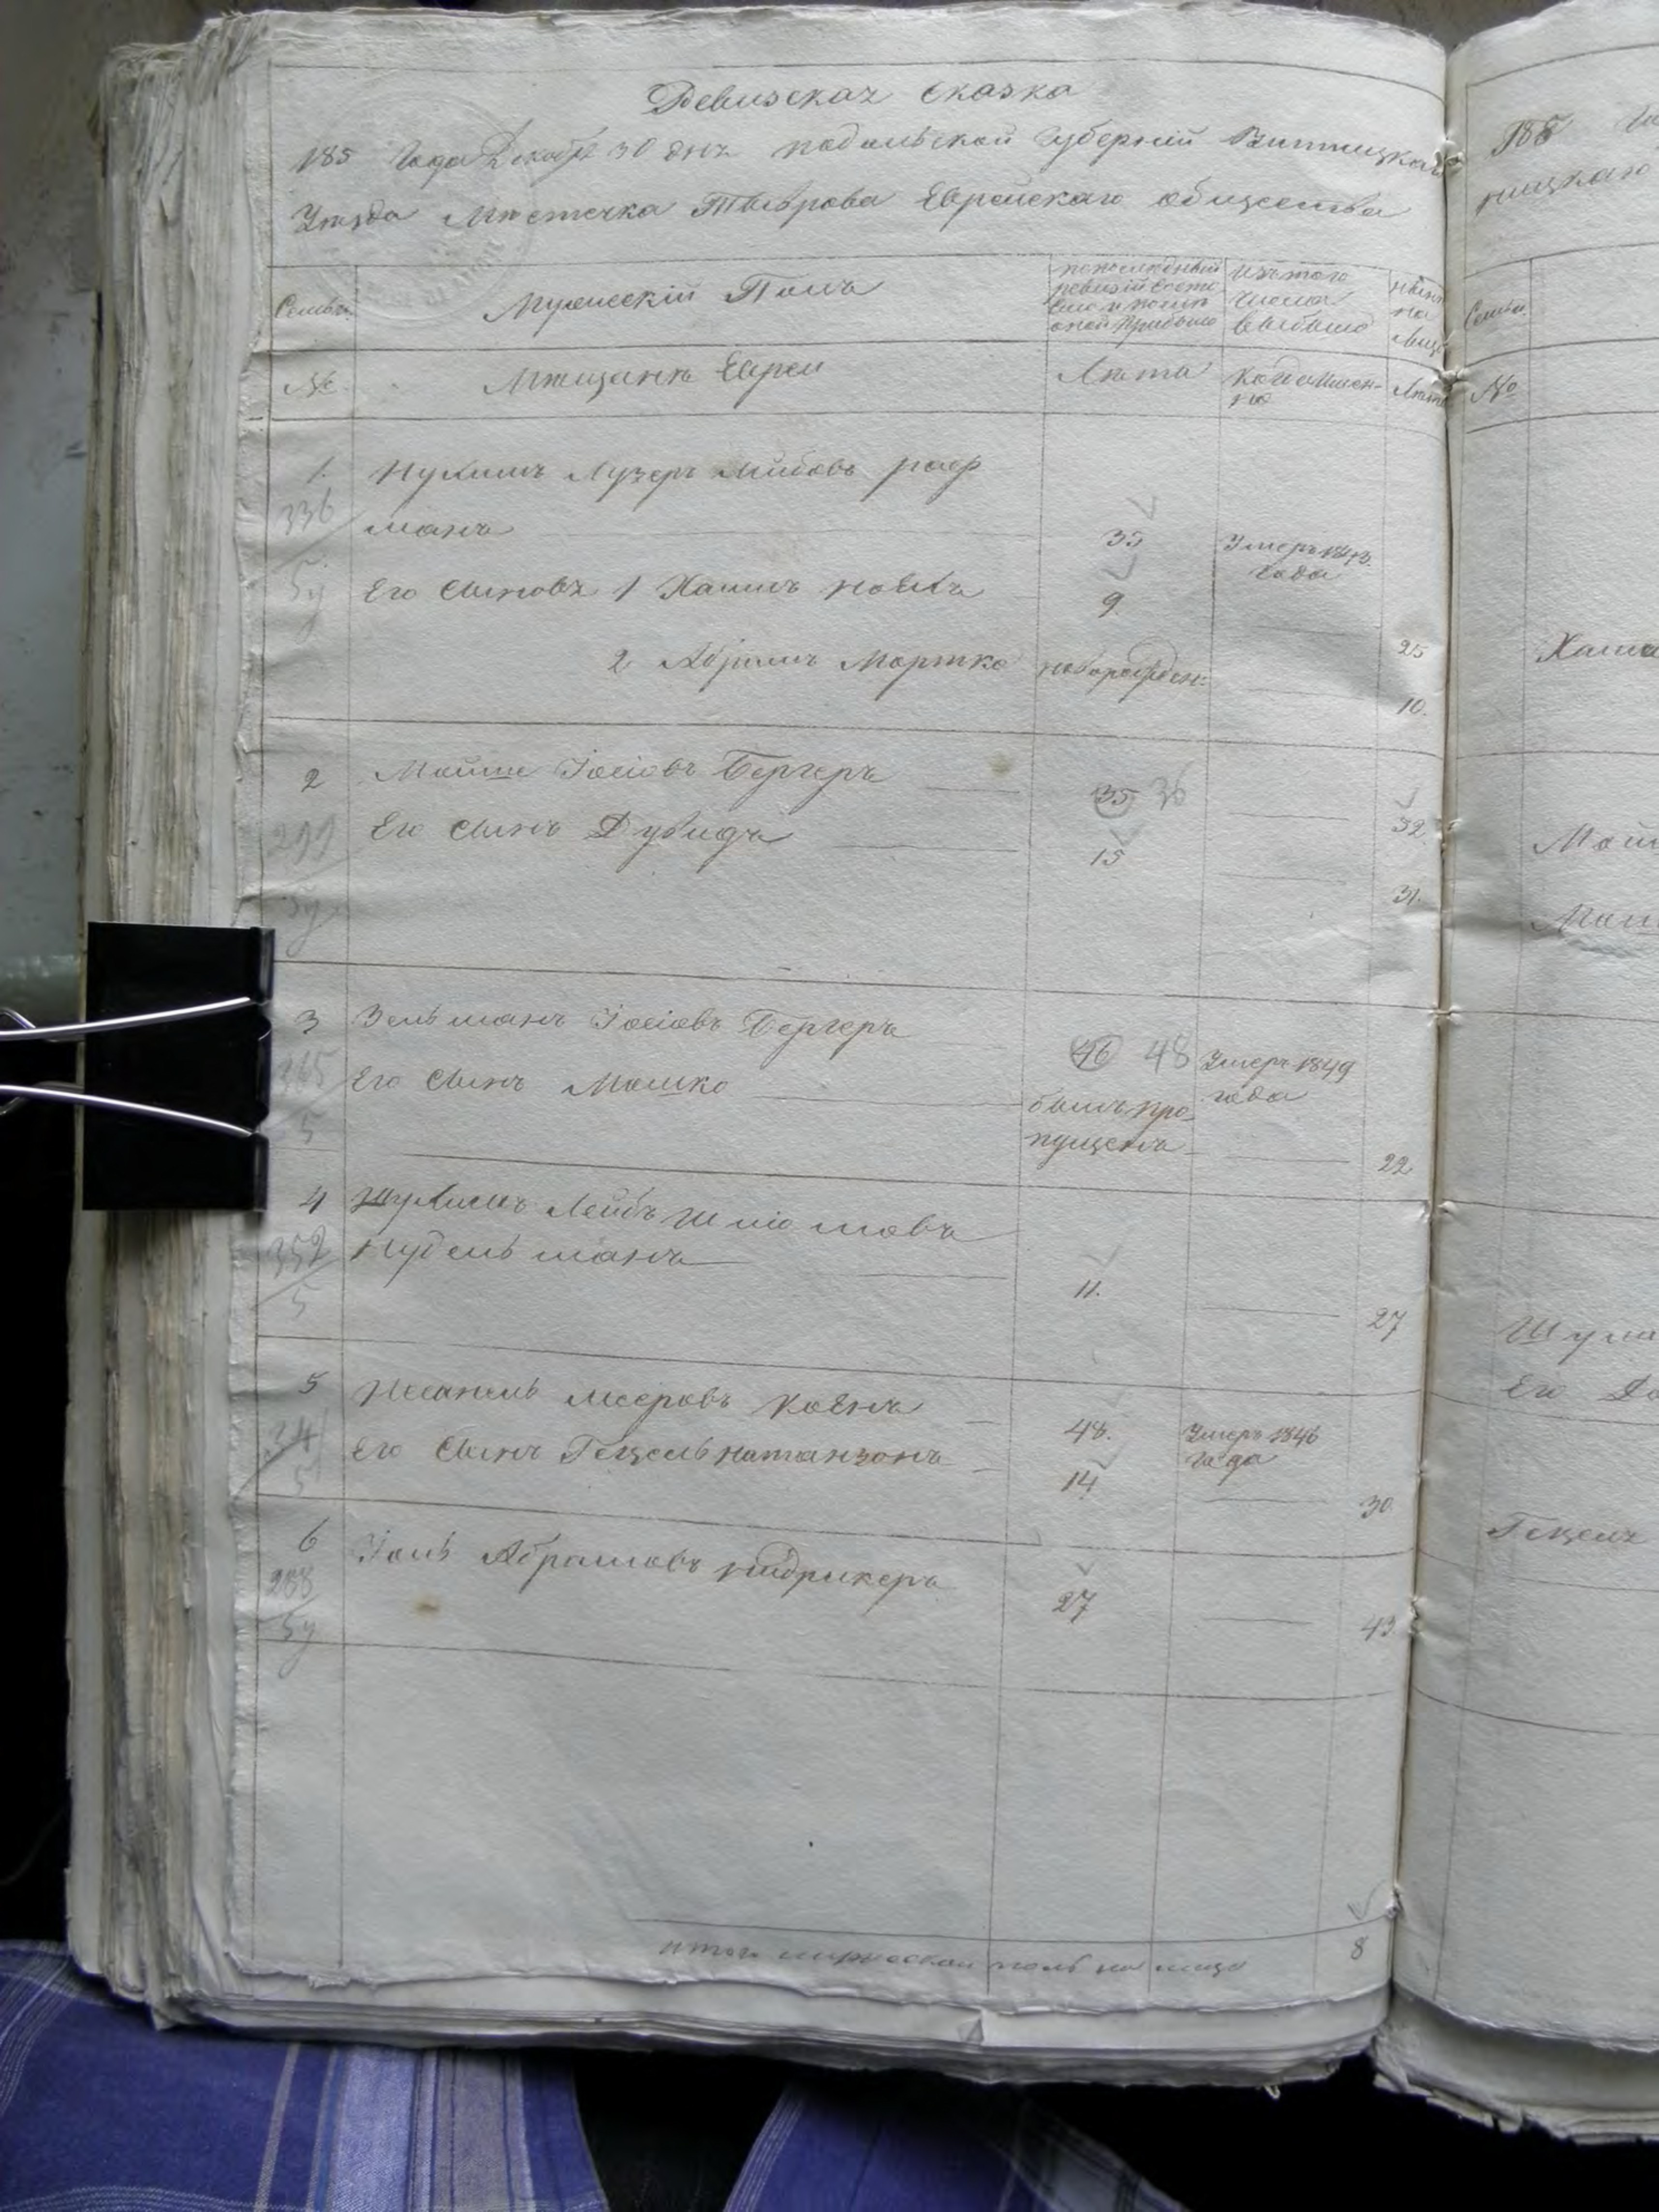 Ревизская сказка
185 Года Декабря 30 дня подольской Губерній Винницкаго
Уѣзда Мѣстечка Тыврова Еврейскаго общества
Семьи
Мужескій Полъ
по последный ревизій состояло и после оной прибыло
Изъ того числа выбыло
Нынѣ на лицо
№
Мѣщанѣ Евреи
Лѣта
Когда именно
Лѣта
1.
336
5у
Нухимъ Лузеръ Лейбовъ
манъ
35
Умеръ 1843 года
Его Сыновья 1 Хаимъ
9.
25
2 Абрамъ Мортко
новорожден:
10.
2
299
5у
Мойше Іосіовъ Бергеръ
35 36
32
Его Сынъ Дувидъ
15
31.
3
345
5
Зельманъ Іосіовъ Бергеръ
46 48
Умеръ 1849 года
Его Сынъ Мошко
былъ пропущенъ
22
4
352
5
Шулимъ Лейбъ Шліомовъ
Нудельманъ
11.
27
5
5
Несанель Мееровъ Коенъ
48.
Умеръ 1846 года
Его Сынъ Гецель Натанзонъ
14
30.
6
288
5у
Іоль Абрамовъ
27
43.
итого мужеской полъ на лицо
8
185
№
Хаим
Мой
Мош
Шули
Его
Гецеля